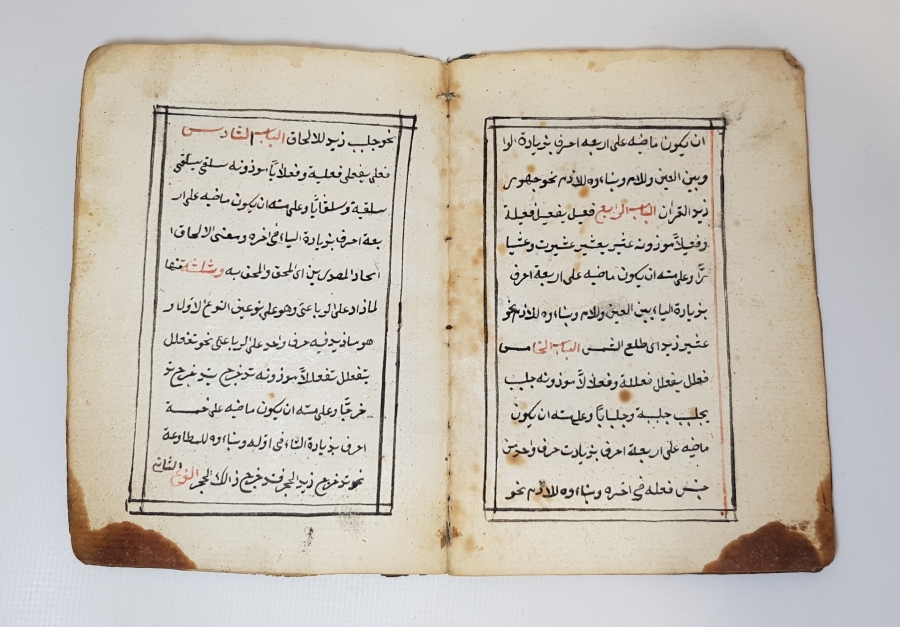 ان يكون ماضيه على اربعة احرف بزيادة الوا
وبين العين وللام وبناءوه للازم نحو جهور
زيد القران الباب الرابع فعيل يفعيل فعيلة
وفعيلاً موزونه عثير يعثير عثيرت وعثيا
رًا وعلامته ان يكون ماضيه على اربعة احرف
بزيادة الياء بين العين وللام وبناءوه للازم نحو
عثير زيد اى طلع الشمس الباب الخامس
فعلل يفعلل فعللة وفعلالاً موزونه جلبب
يجلبب جلببة وجلبابًا وعلامته ان يكون
ماضيه على اربعلة احرف بزيادت حرف واحد من
جنس فعله فى اخره وبناءوه للازم نحو
نحو جلبب زيد للالحاق الباب السادس
فعلى يفعلى فعلية وفعلايًا موزونه سلقى يسلقى
سلقية وسلقايًا وعلامته ان يكون ماضيه على ار
بعة احرف بزيادة الياء فى اخره ومعنى الالحاق ا
اتحاد المصدرين اى الملحق والملحق به وثلثة منها
لما زاد على الرباعى وهو على نوعين النوع الاول و
هو ما زيد فيه حرف واحد على الرباعى نحو تفعلل
يتفعلل تفعللاً موزونه تدحرج يتدحرج تد
حرجًا وعلامته ان يكون ماضيه على خمسة
احرف بزيادة التاء فى اوله وبناءوه للمطاوعة
نحو دحرج زيد الحجر فتدحرج ذالك الحجر النوع الثانى